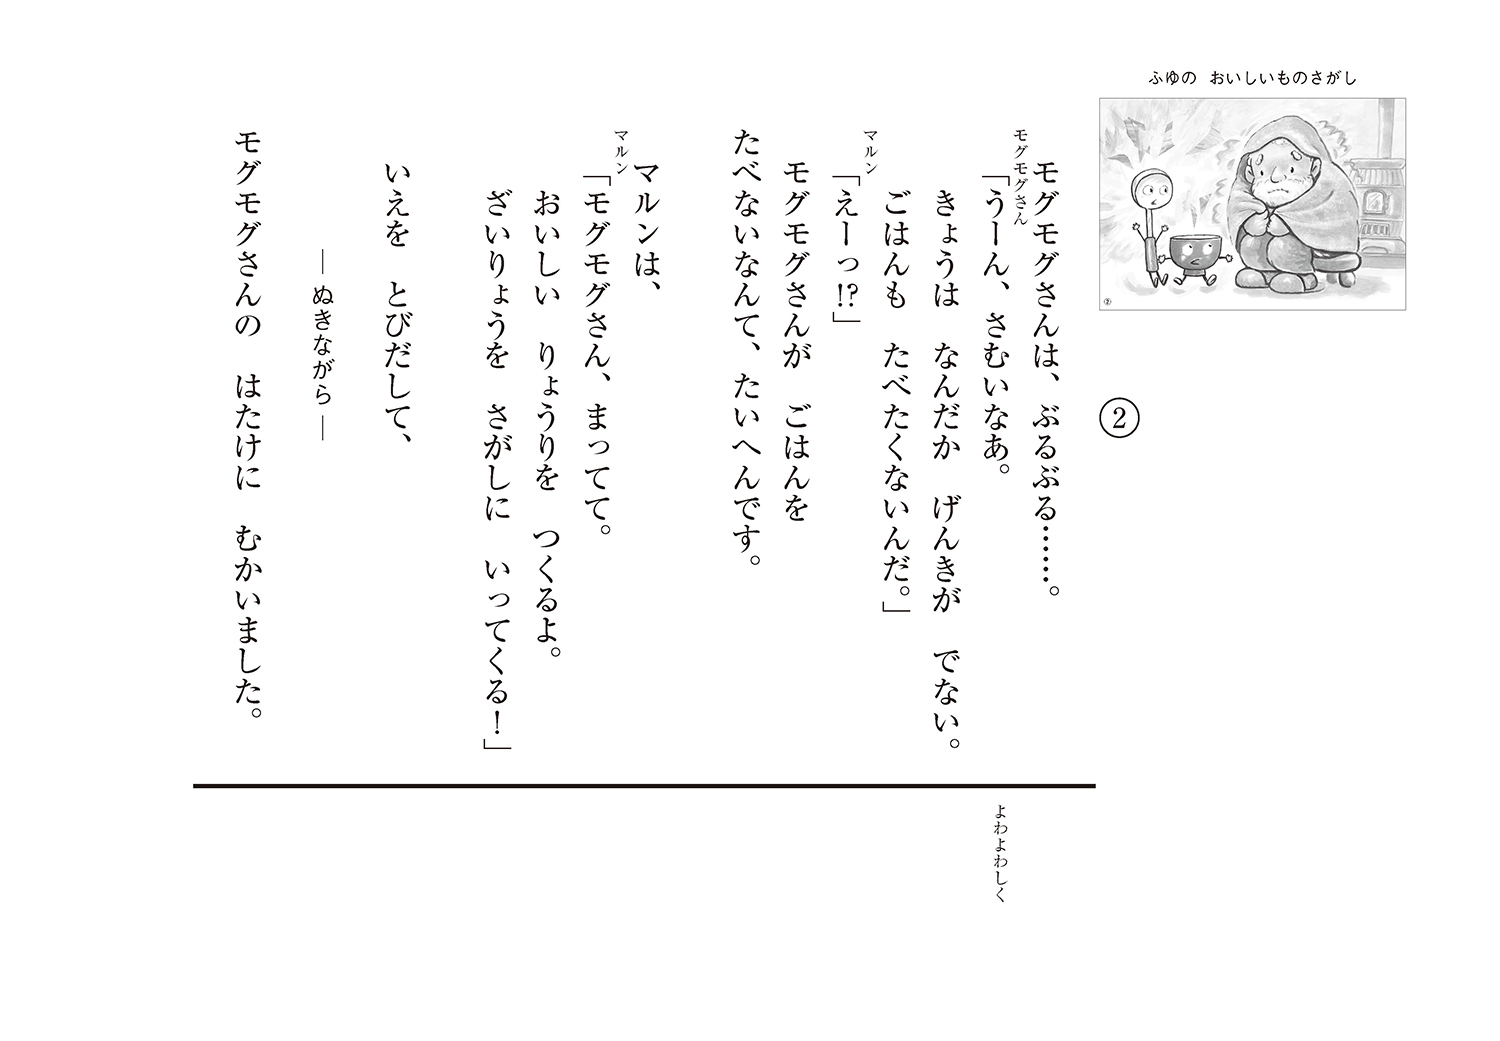 ふゆの　おいしいものさがし
②
②
モグモグさんは、ぶるぶる……。
モグモグさん
「うーん、さむいなあ。
よわよわしく
きょうは　なんだか　げんきが　でない。
ごはんも　たべたくないんだ。」
マルン
「えーっ!?」
モグモグさんが　ごはんを
たべないなんて、たいへんです。
マルンは、
マルン
「モグモグさん、まってて。
おいしい　りょうりを　つくるよ。
ざいりょうを　さがしに　いってくる！」
いえを　とびだして、
―ぬきながら―
モグモグさんの　はたけに　むかいました。